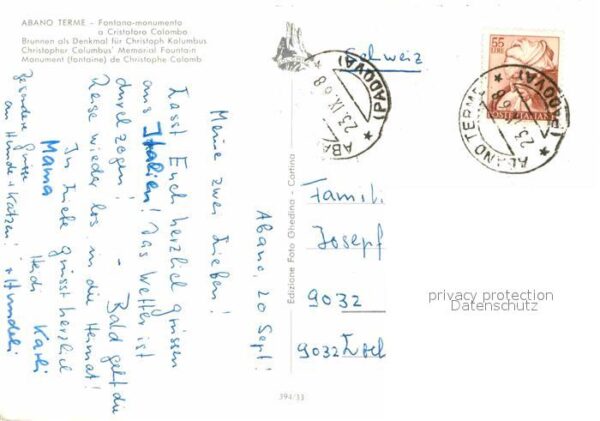 ABANO TERME - Fontana-monumento
a Cristoforo Colombo
Brunnen als Denkmal für Christoph Kolumbus
Christopher Columbus' Memorial Fountain
Monument (fontaine) de Christophe Colomb
Abano, 20 Sept!
Meine zwei Lieben!
Lasst Euch herzlich grüssen
aus Italien! Das Wetter ist
durchzogen! - Bald geht die
Reise wieder los in die Heimat!
In Liebe grüsst herzlich
Mama Heidi Karli
+ Hundeli
an Hunde + Katzen!
Edizione Foto Ghedina - Cortina
394/33
Schweiz
ABANO TERME
(PADOVA)
23.IX.68
55
LIRE
POSTE ITALIANE
ABANO TERME
(PADOVA)
23.IX.68
Famil.
Josepf
9032
9032
privacy protection
Datenschutz